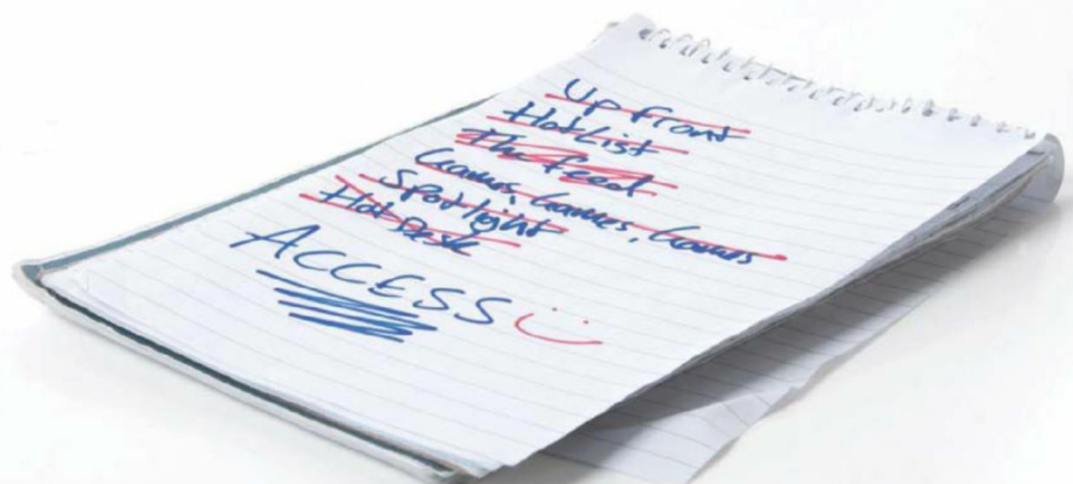 Up front
Hot List
The Feed
Games, Games, Games
Spotlight
Hot Desk
ACCESS